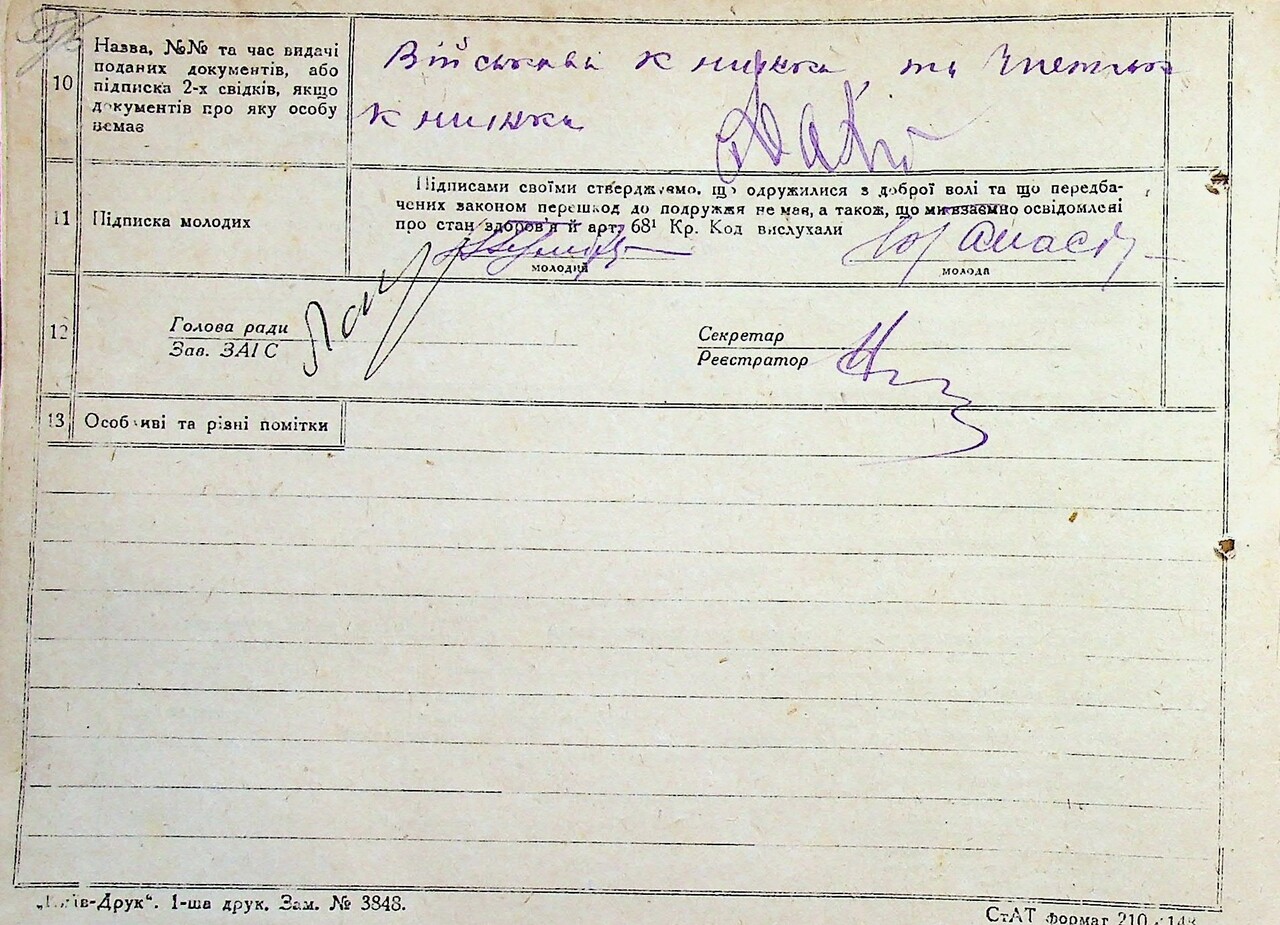 10
Назва, №№ та час видачі
поданих документів, або
підписка 2-х свідків, якщо
документів про яку особу
немає
Військова книжка, та
книжка
11
Підписка молодих
Підписами своїми стверджуємо, що одружилися з доброї волі та що передба-
чених законом перешкод до подружжя не має, а також, що ми взаємно освідомлені
про стан здоров'я й арт. 68¹ Кр. Код вислухали
молодий
молода
12
Голова ради
Зав. ЗАГС
Секретар
Реєстратор
13
Особливі та різні помітки
„Київ-Друк“. 1-ша друк. Зам. № 3848.
СтАТ формат 210 148